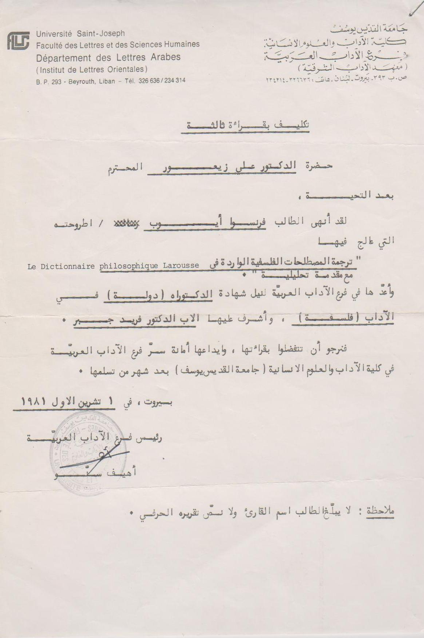 Université Saint-Joseph
Faculté des Lettres et des Sciences Humaines
Département des Lettres Arabes
(Institut de Lettres Orientales)
B. P. 293 - Beyrouth, Liban - Tél. 326 636 / 234 314
جامعة القديس يوسف
كلية الآداب والعلوم الانسانية
فرع الآداب العربية
(معهد الآداب الشرقية)
تكليف بقراءة ثالثة
حضرة الدكتور علي زيعور المحترم
بعد التحية ،
لقد أنهى الطالب فرنسوا أيوب / اطروحته
التي عالج فيها
" ترجمة المصطلحات الفلسفية الواردة في Le Dictionnaire philosophique Larousse
مع مقدمة تحليلية "
وأعدّها في فرع الآداب العربيّة لنيل شهادة الدكتوراه (دولة) في
الآداب (فلسفة) ، وأشرف عليها الاب الدكتور فريد جبر .
فنرجو أن تتفضلوا بقراءتها ، وايداعها أمانة سرّ فرع الآداب العربيّة
في كلية الآداب والعلوم الانسانية (جامعة القديس يوسف) بعد شهر من تسلمها .
بيروت ، في ١ تشرين الاول ١٩٨١
رئيس فرع الآداب العربيّة
أهيف سنّو
ملاحظة : لا يبلّغ الطالب اسم القارئ ولا نصّ تقريره الحرفي .